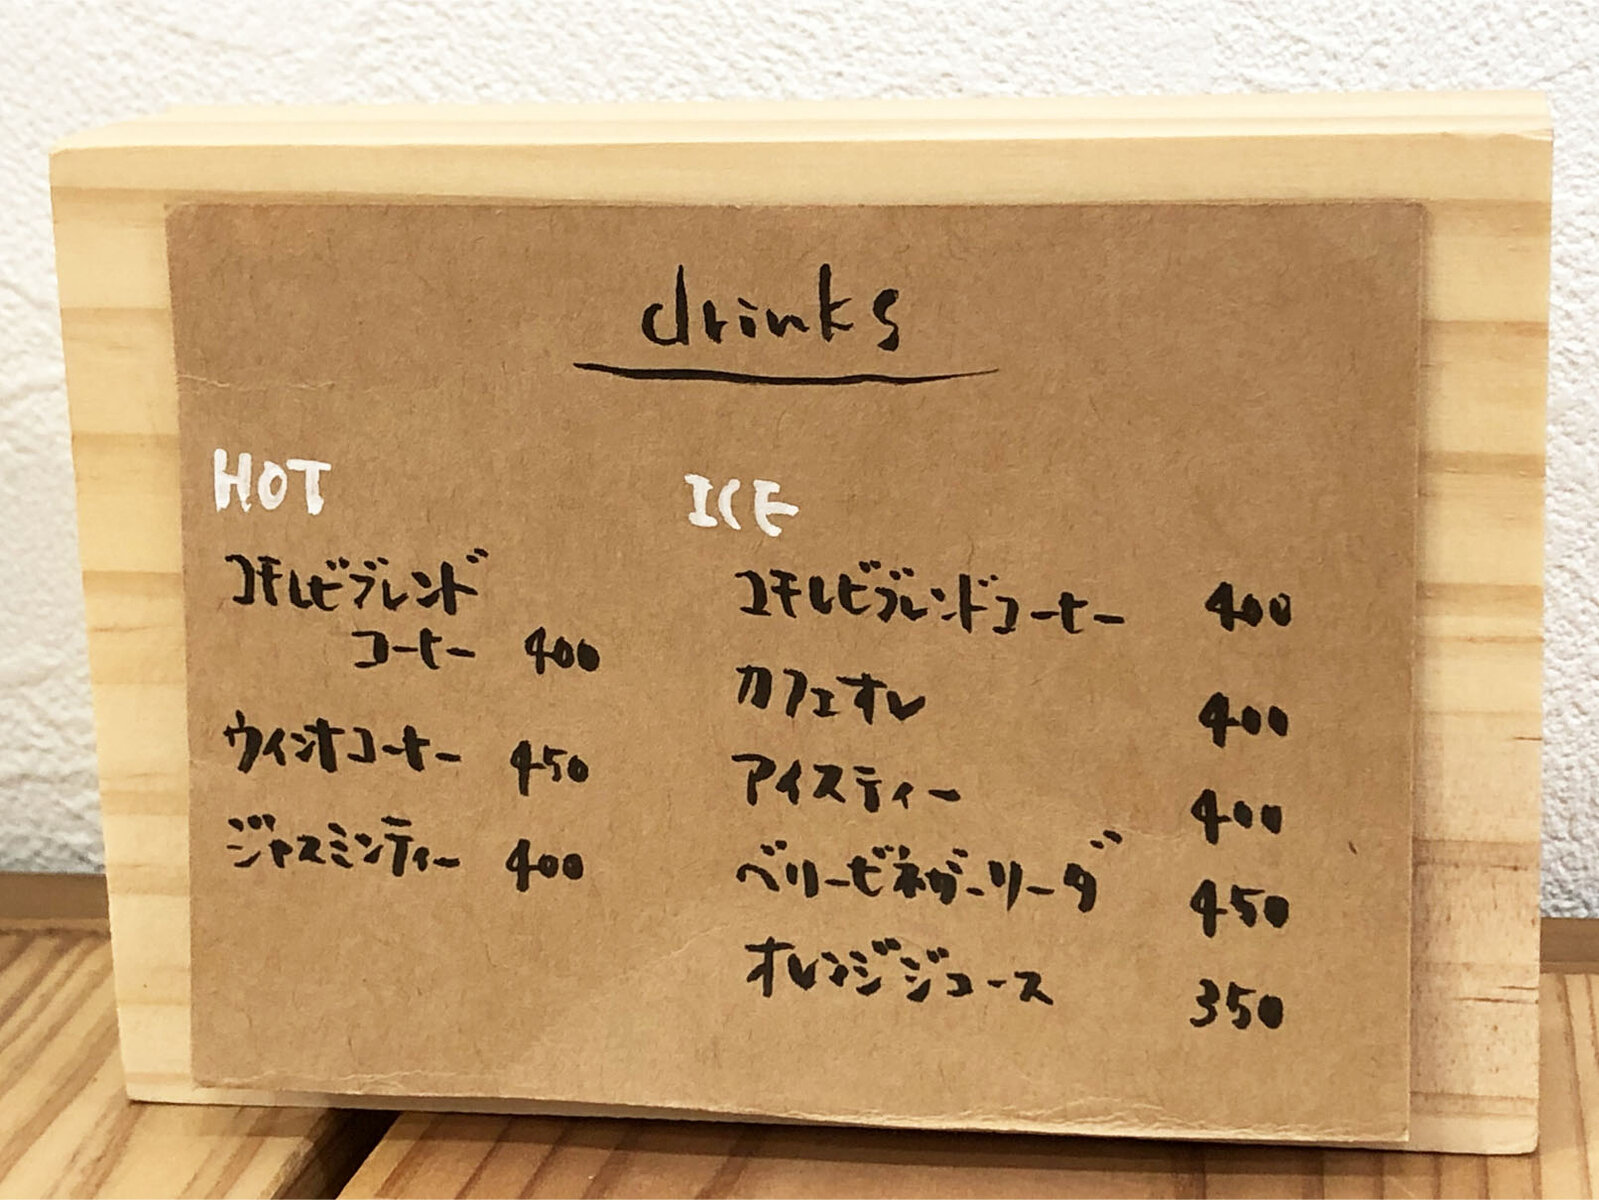 drinks
HOT
コモレビブレンド
コーヒー 400
ウインナコーヒー 450
ジャスミンティー 400
ICE
コモレビブレンドコーヒー 400
カフェオレ 400
アイスティー 400
ベリービネガーソーダ 450
オレンジジュース 350